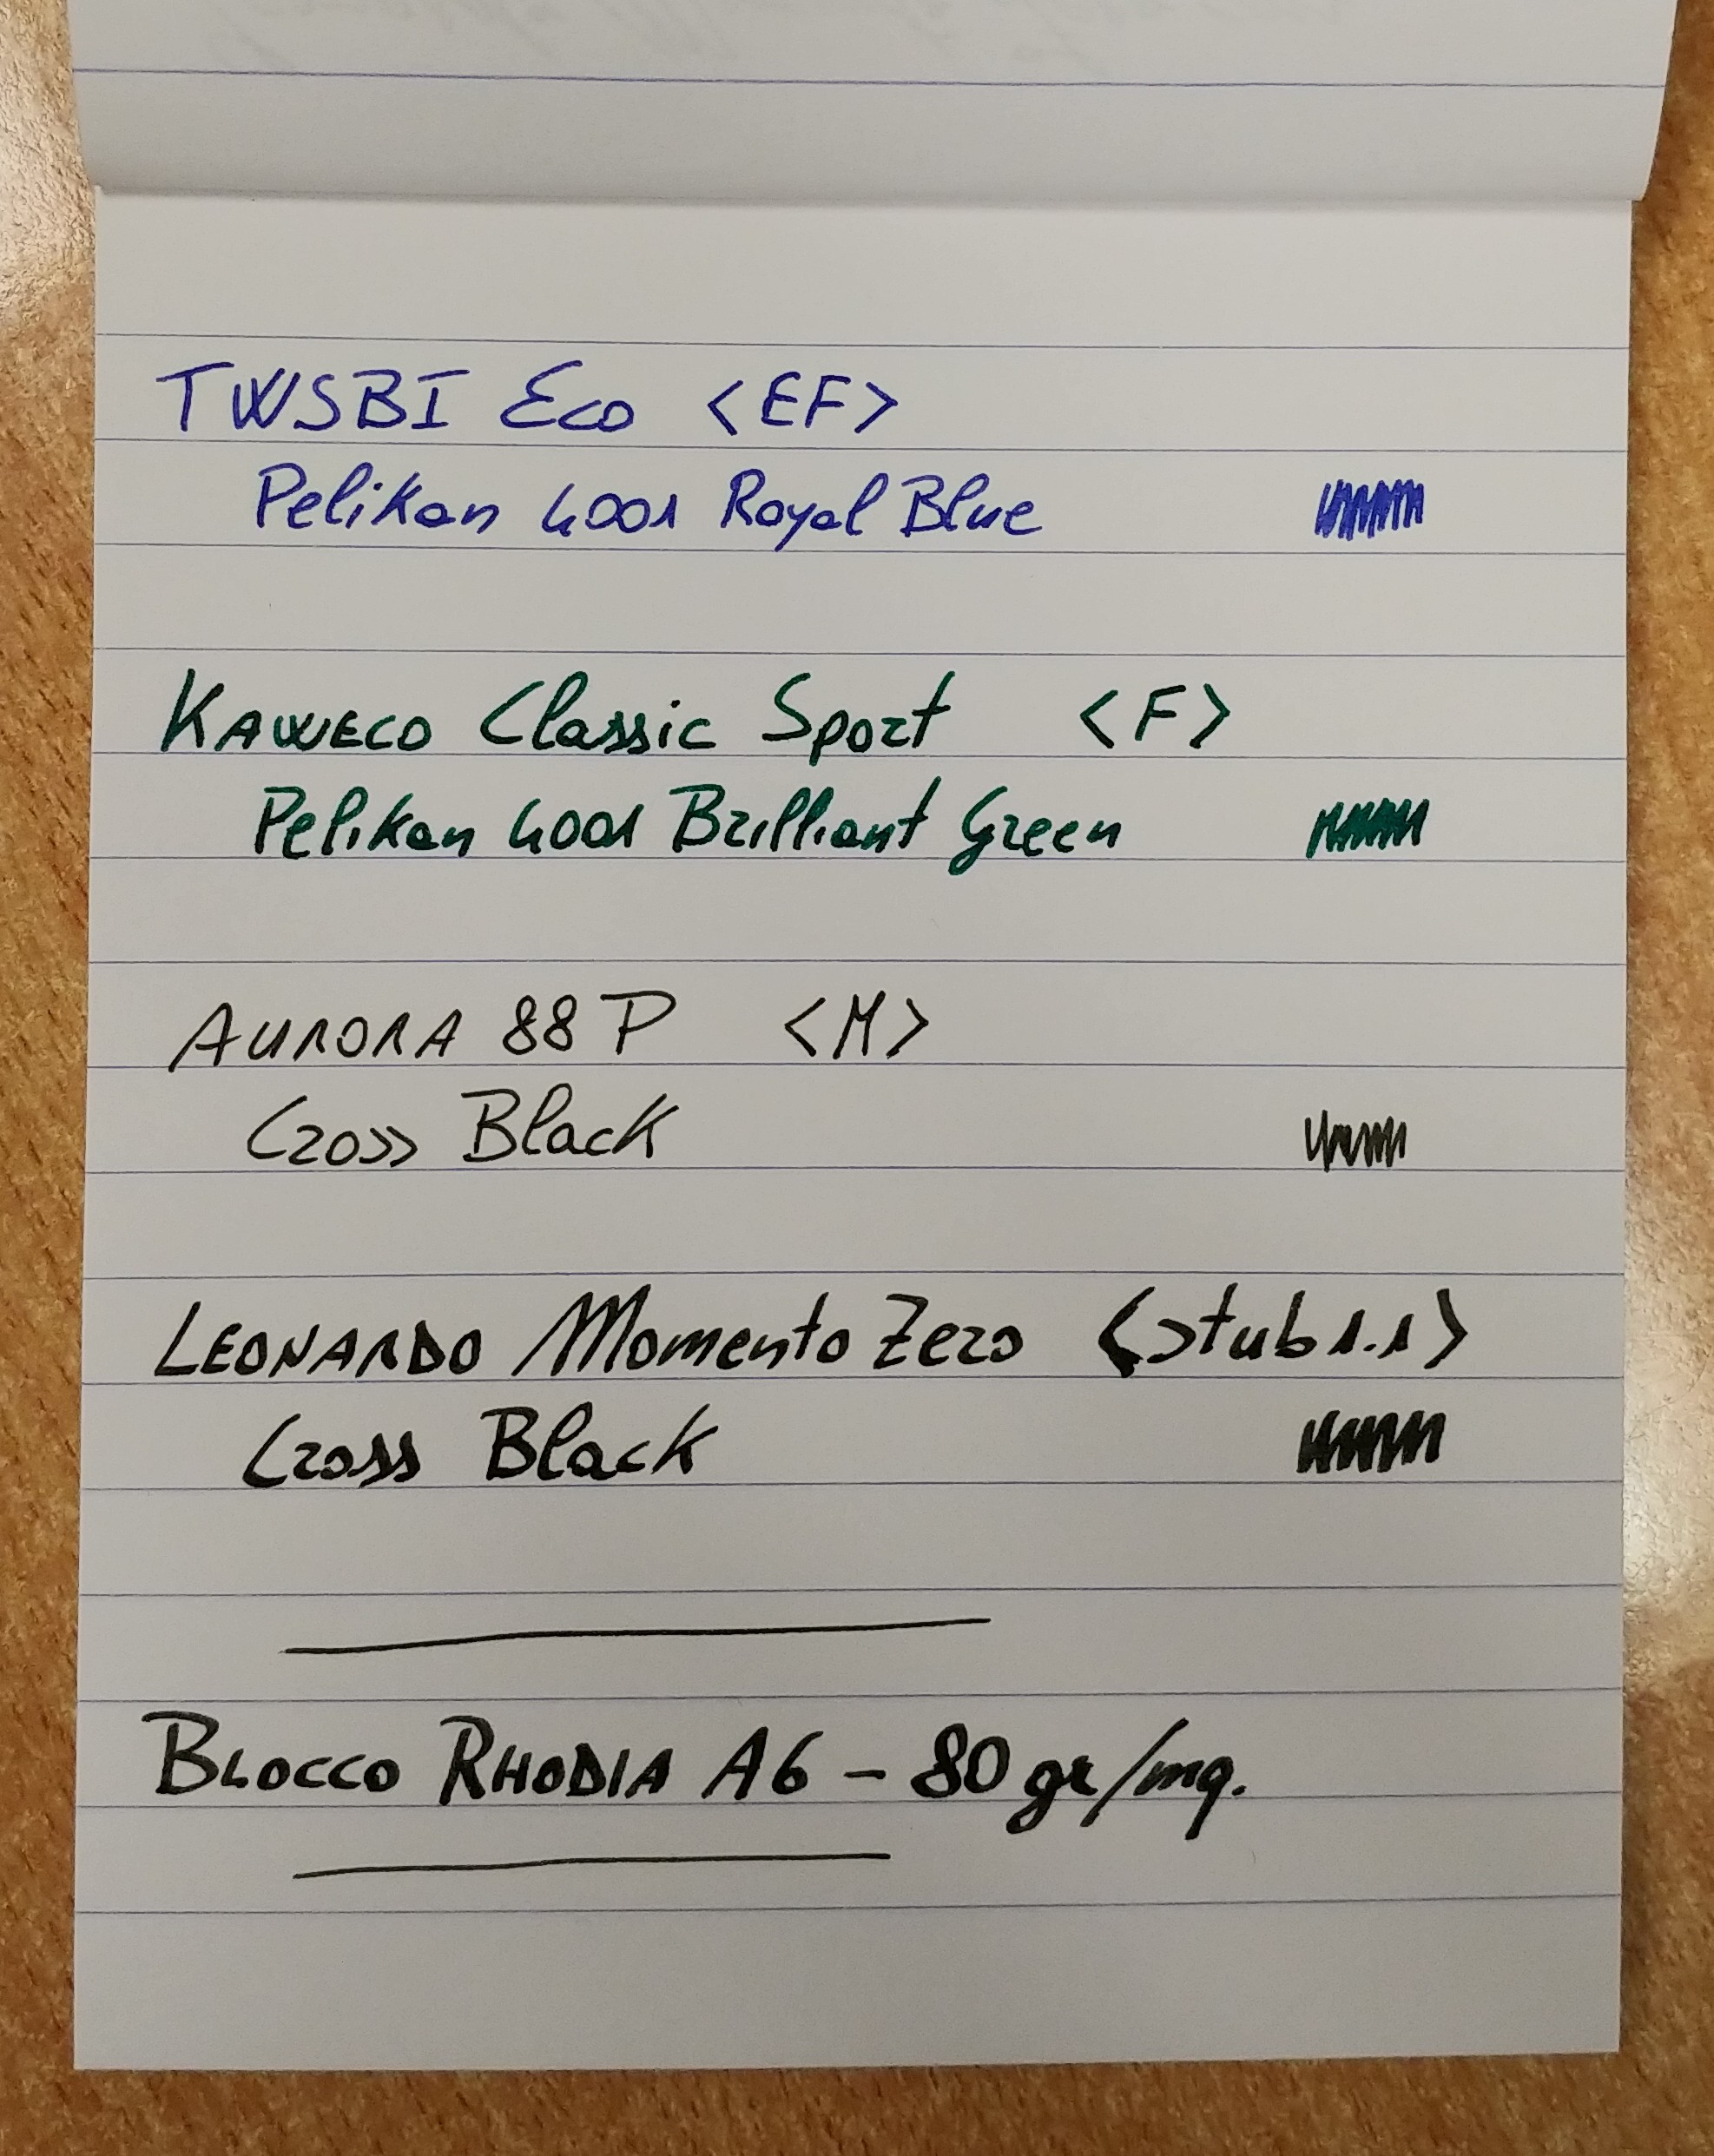 TWSBI Eco <EF>
Pelikan 4001 Royal Blue
KAWECO Classic Sport <F>
Pelikan 4001 Brilliant Green
AURORA 88P <M>
Cross Black
LEONARDO Momento Zero <stub 1.1>
Cross Black
BLOCCO RHODIA A6 - 80 gr/mq.